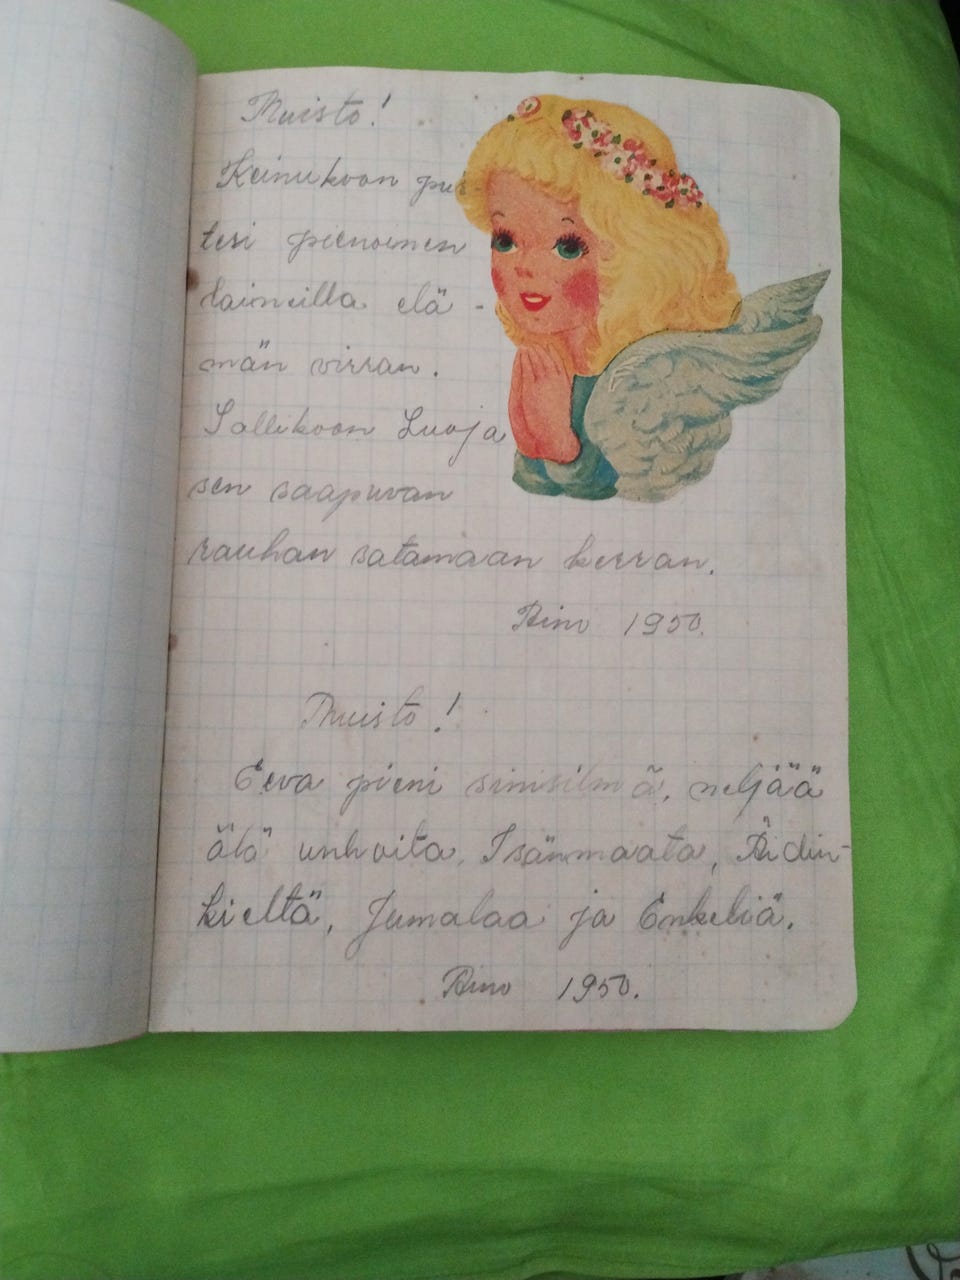 Muisto!
Keinukoon pur-
tesi pienoinen
laineilla elä-
män virran.
Sallikoon Luoja
sen saapuvan
rauhan satamaan kerran.
Aino 1950.
Muisto!
Eeva pieni sinisilmä, neljää
älä unhoita, Isänmaata, Äidin-
kieltä, Jumalaa ja Enkeliä.
Aino 1950.